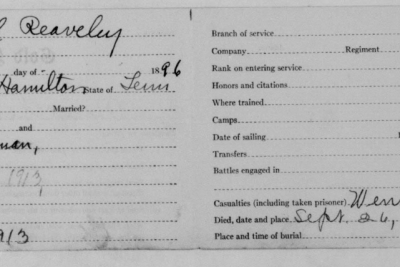 Reavely
day of 1896
Hamilton State of Tenn
Married?
and
man,
1913,
913
Branch of service
Company Regiment
Rank on entering service
Honors and citations
Where trained
Camps
Date of sailing
Transfers
Battles engaged in
Casualties (including taken prisoner) Wen
Died, date and place. Sept. 26,
Place and time of burial.